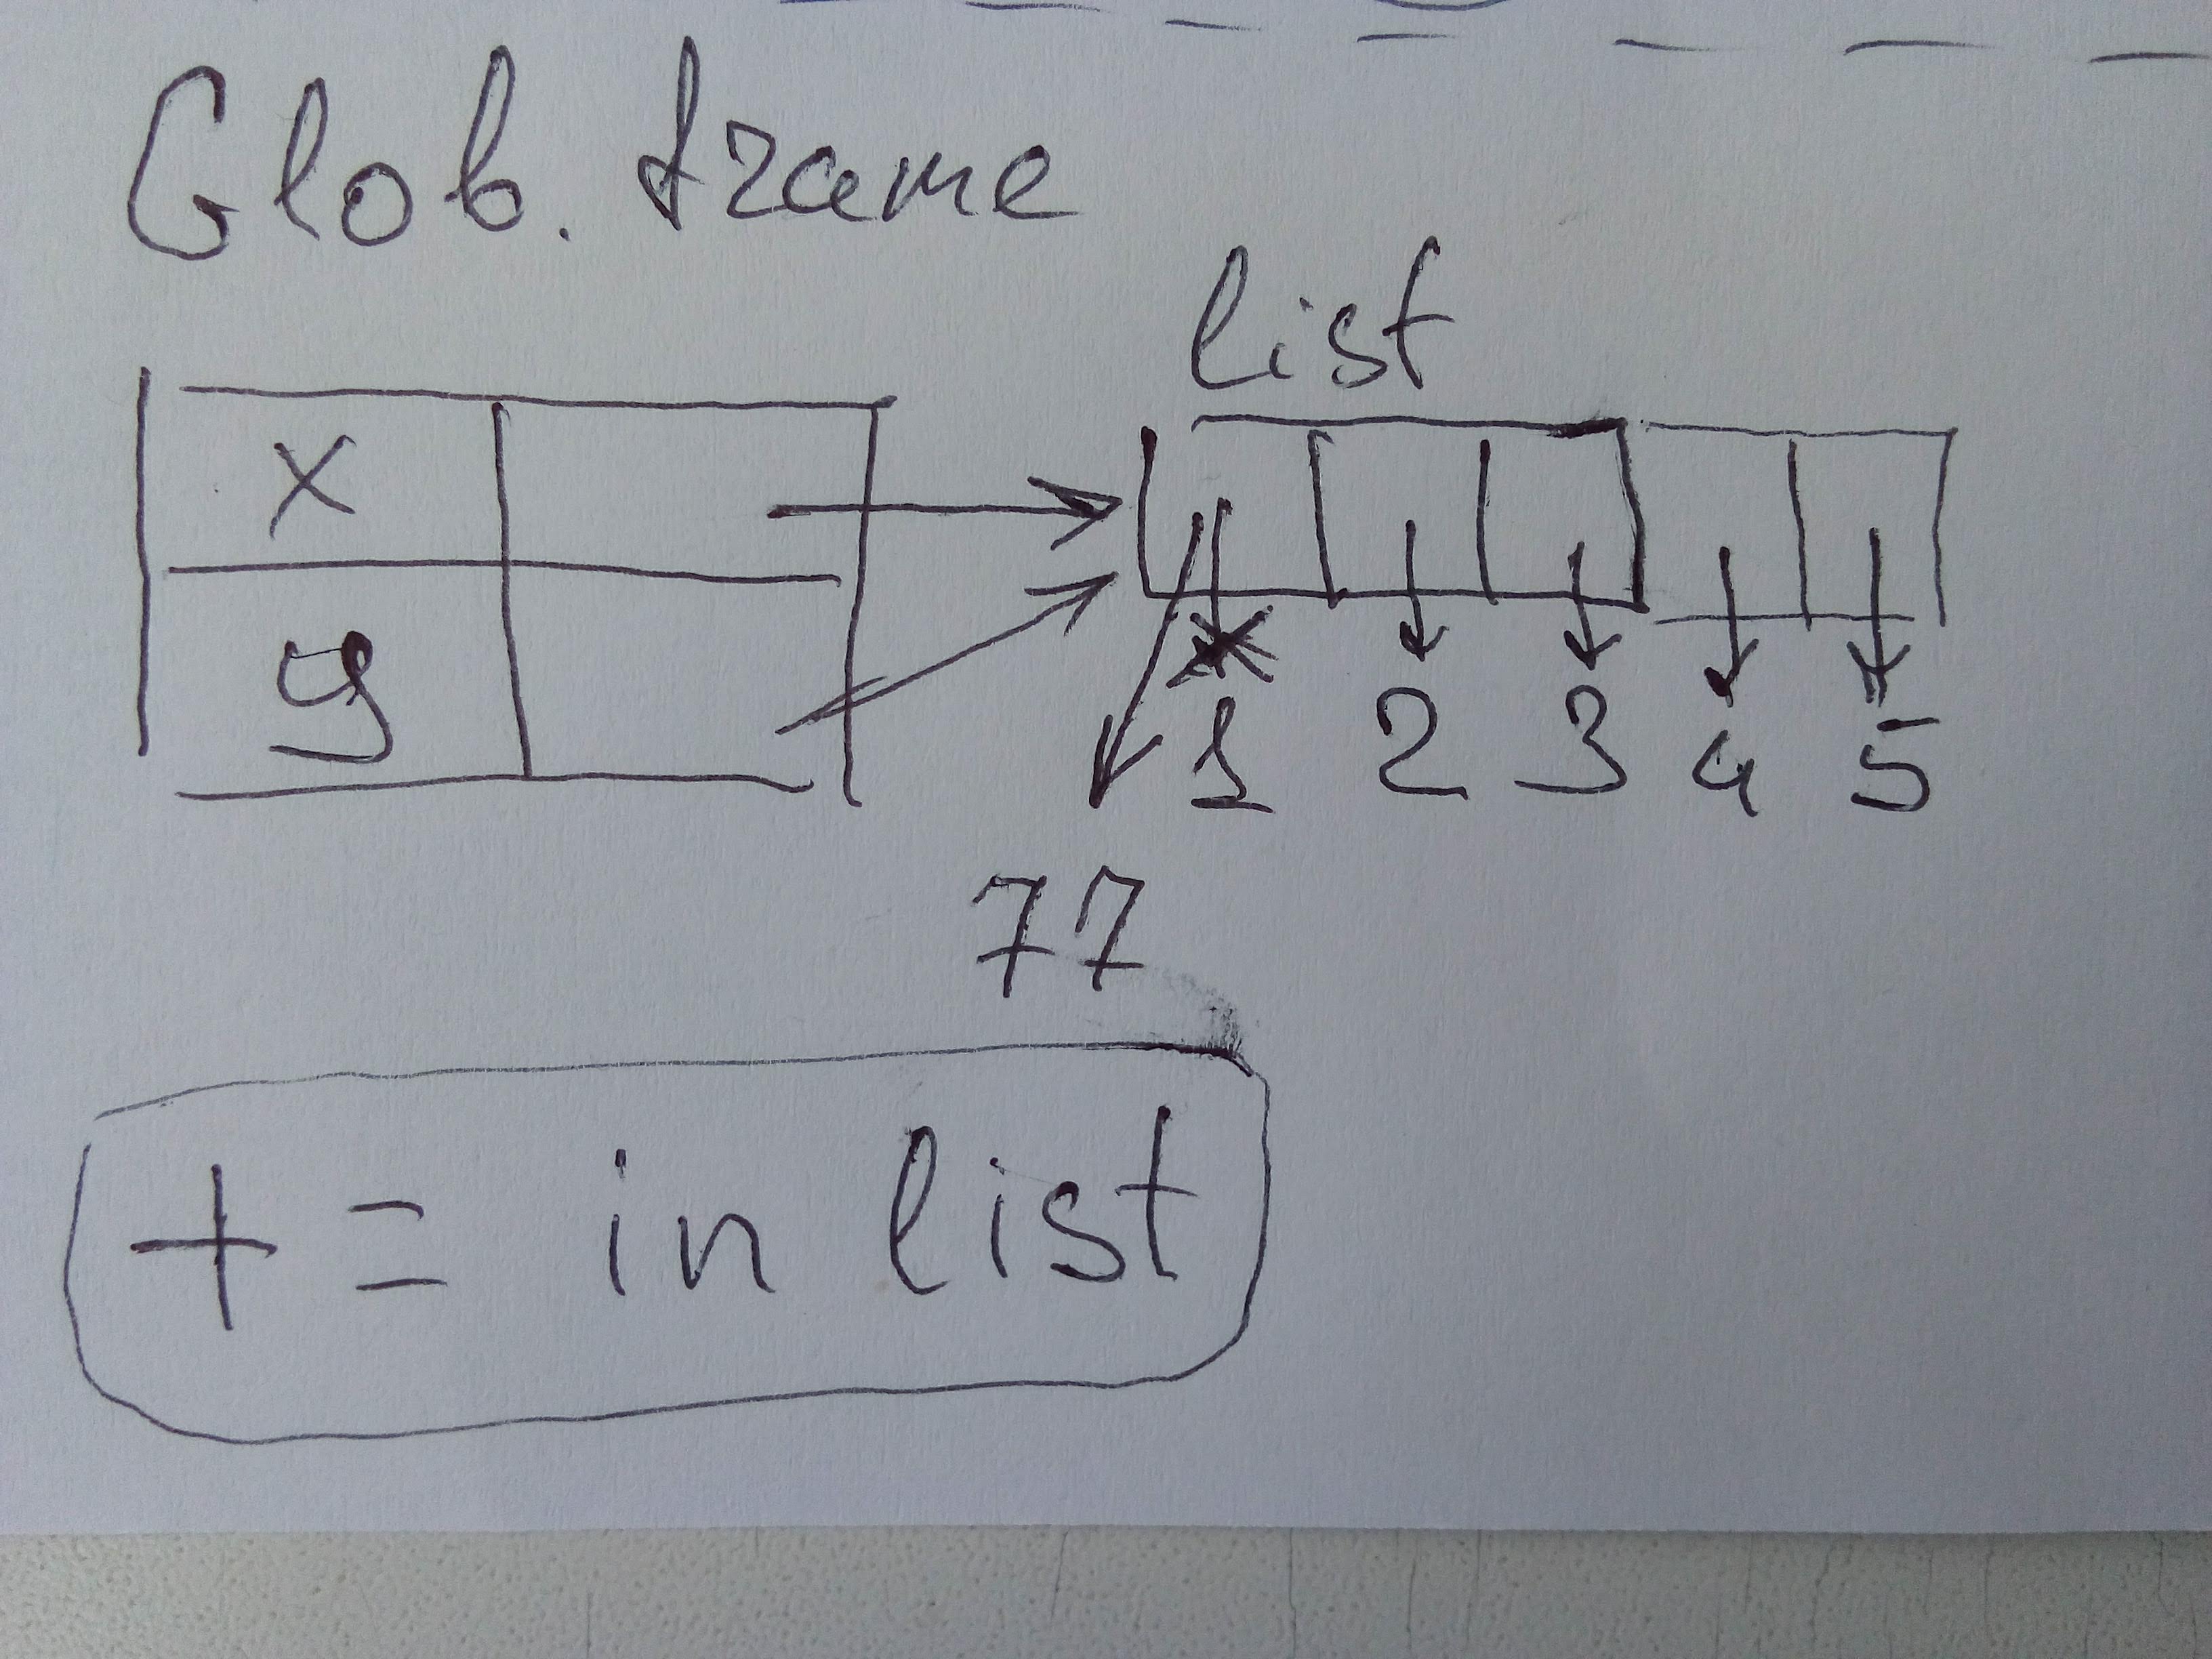 Glob. frame
list
x
y
1 2 3 4 5
77
+= in list